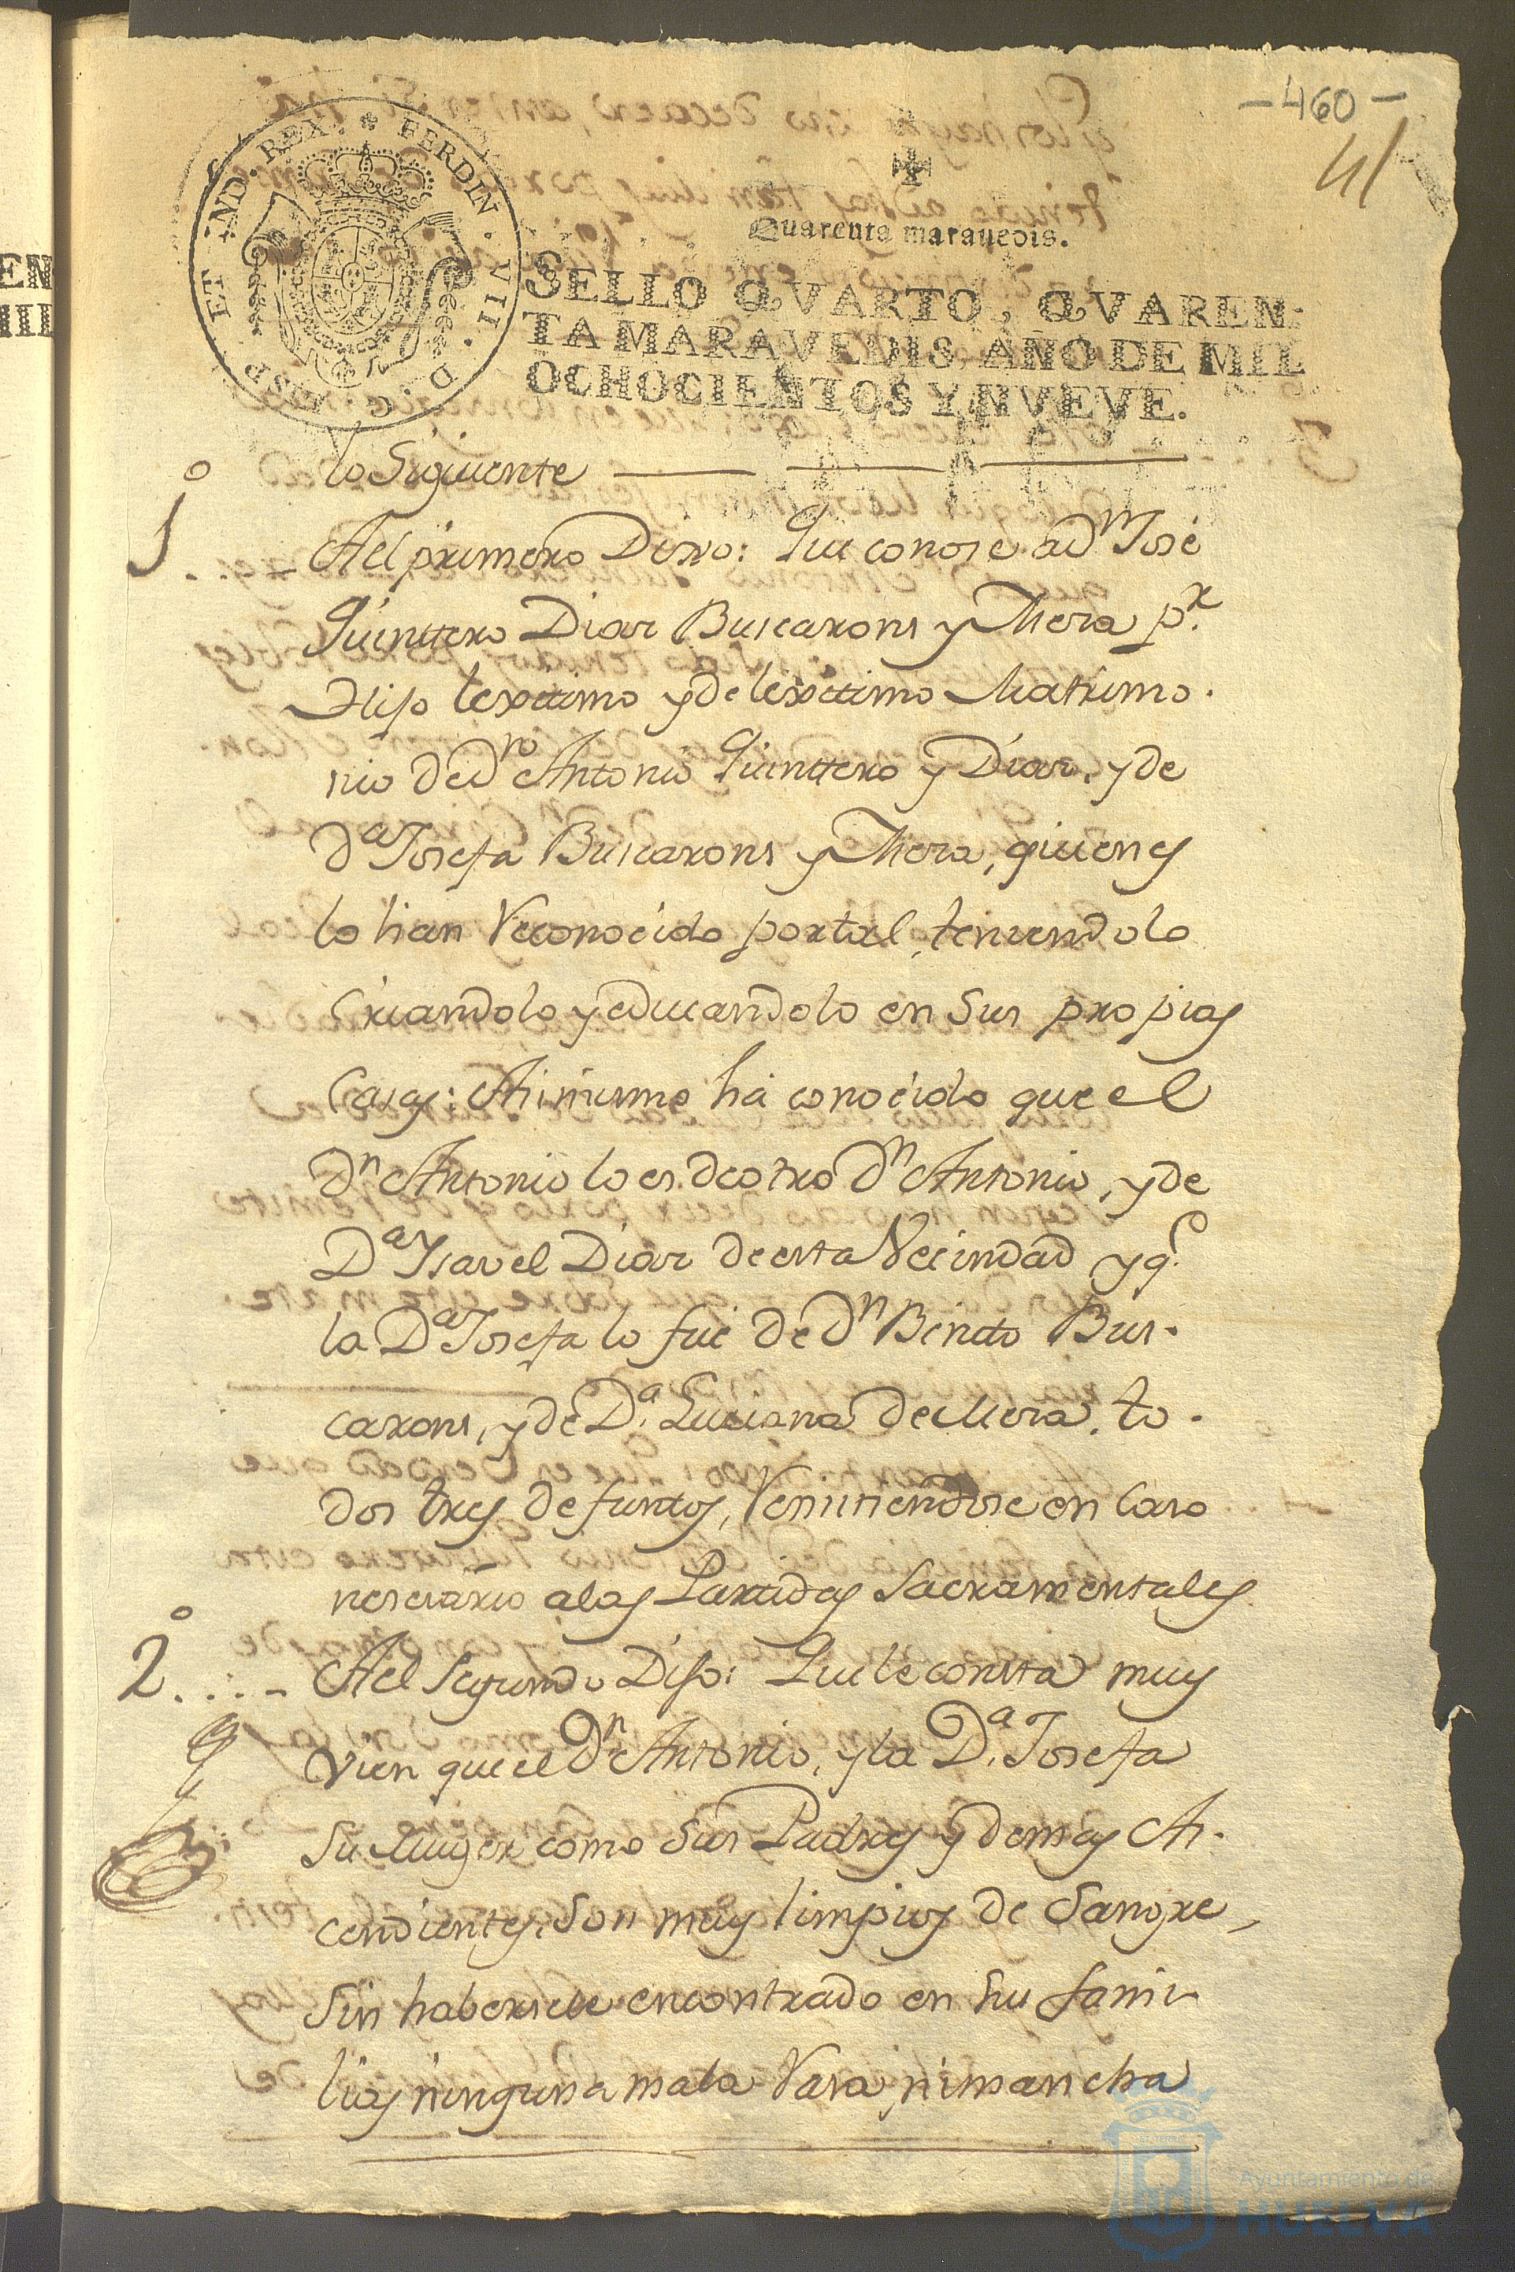 -460-
41
FERDIN. VII. D. G. HISP. ET IND. REX.
Quarenta marauedis.
SELLO QVARTO, QVAREN-
TA MARAVEDIS, AÑO DE MIL
OCHOCIENTOS Y NVEVE.
lo Siguiente
1º Al primero Dixo: Que conose a Dn José
Quinttero Diaz Buscarons y Mera pr.
Hijo lexittimo y de lexittimo Matrimo-
nio de Dn Antonio Quinttero y Diaz, y de
Da Josefa Buscarons y Mera, quienes
lo han Reconocido por tal, teniendolo
Criandolo y educandolo en Sus propias
Casas: Asimismo há conocido que el
Dn Antonio lo es de otro Dn Antonio, y de
Da Ysavel Diaz de esta Vecindad y qe.
la Da Josefa lo fue de Dn Benitto Bus-
carons, y de Da. Luciana de Mera, to-
dos tres defuntos, Remitiendose en Caso
nesesario a las Partidas Sacramentales
2º Al Segundo Dijo: Que le consta muy
vien que el Dn Antonio, y la Da. Josefa
Su Muger como Sus Padres y demas As-
cendientes, Son muy limpios de Sangre,
Sin haversele encontrado en Su fami-
lias ninguna mala Raza, ni mancha
Ayuntamiento de
HUELVA